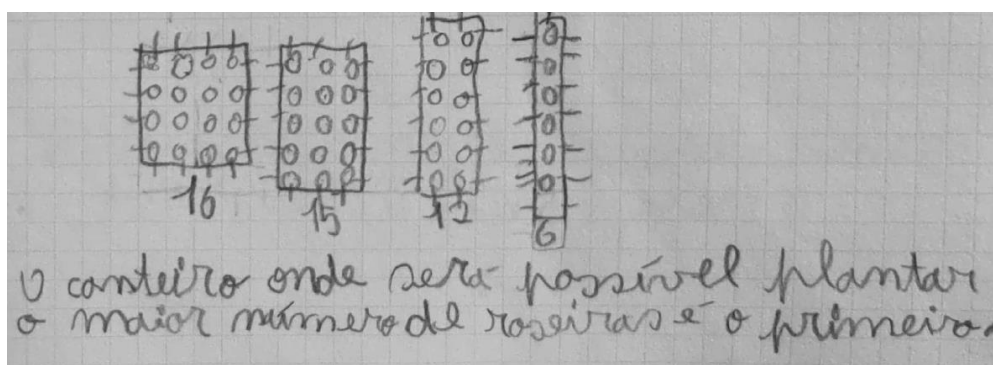 16 15 12 6
O canteiro onde será possível plantar
o maior número de roseiras é o primeiro.